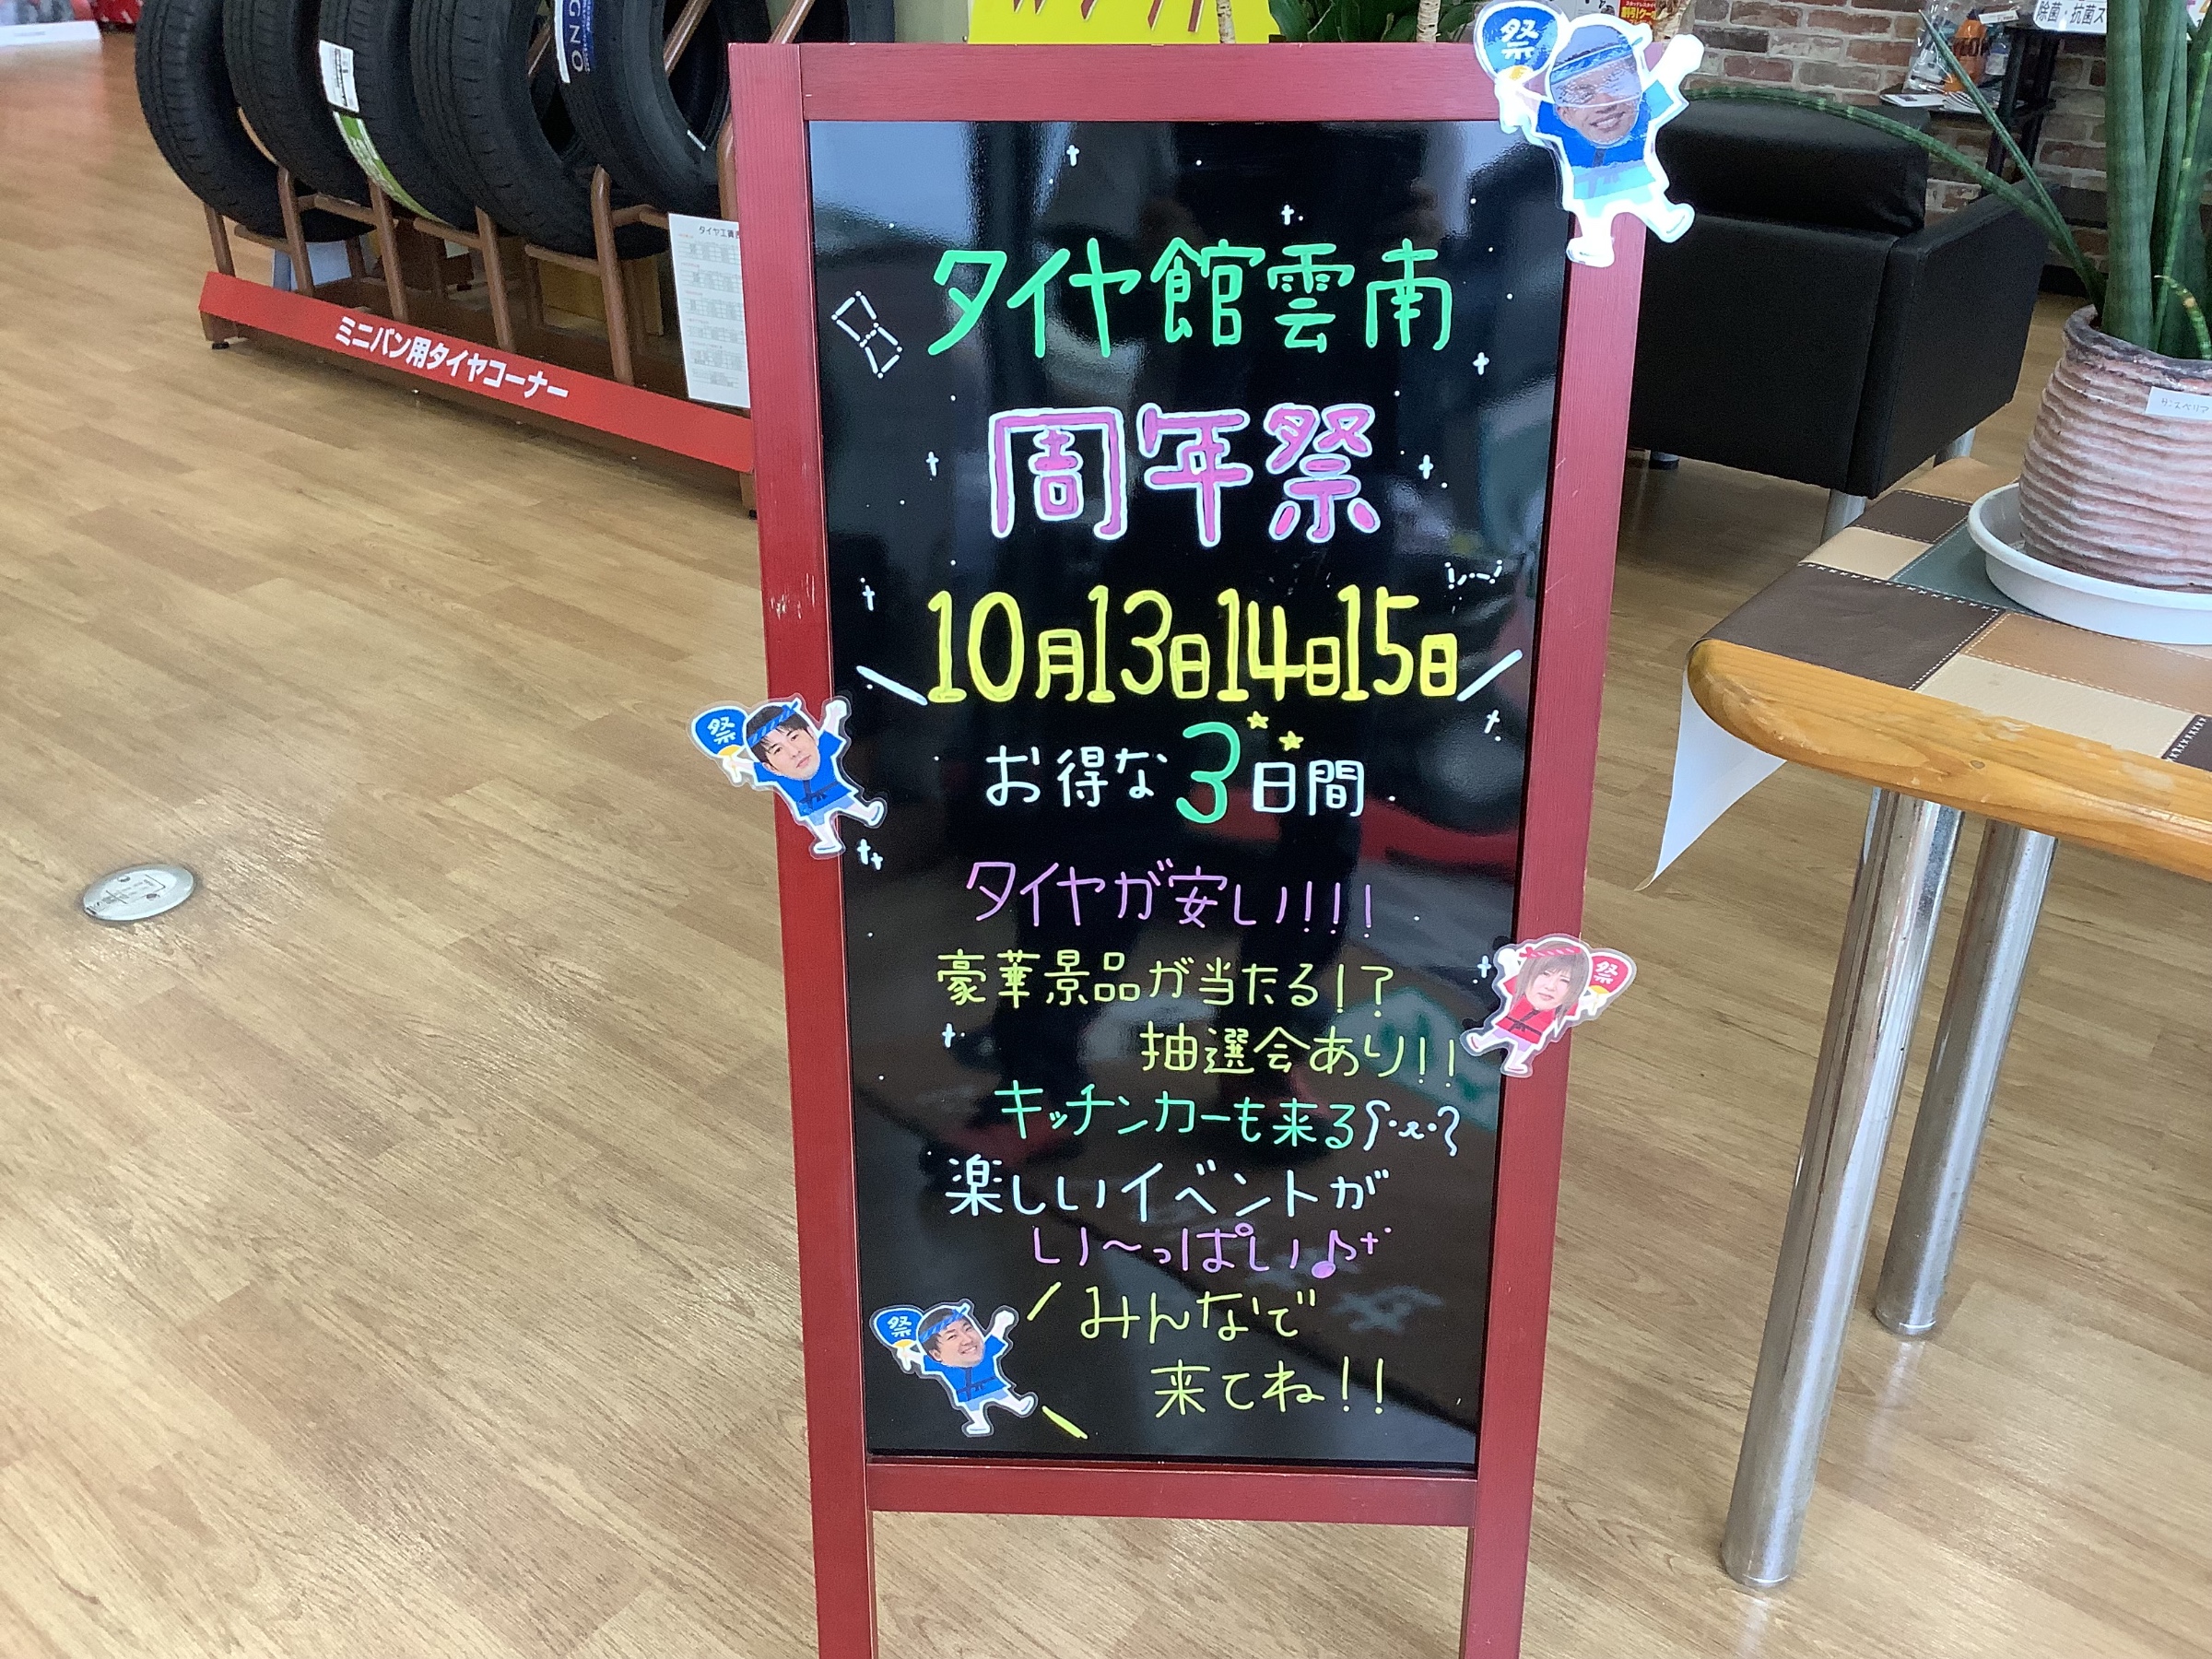 タイヤ館雲南
周年祭
10月13日14日15日
お得な3日間
タイヤが安い!!!
豪華景品が当たる!?
抽選会あり!!
キッチンカーも来る
楽しいイベントが
い〜っぱい♪
みんなで
来てね!!
祭
祭
祭
祭
ミニバン用タイヤコーナー
タイヤ工賃
GNO
除菌・抗菌ス